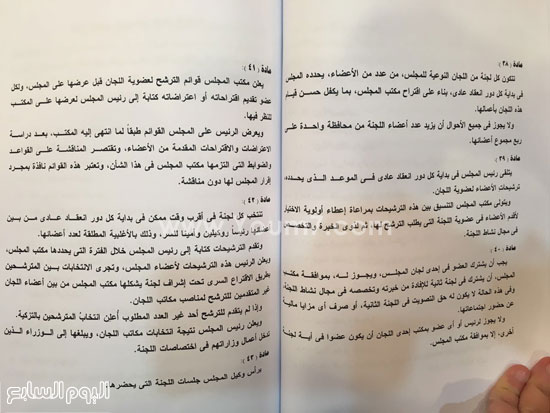 مادة (٣٨)
تتكون كل لجنة من اللجان النوعية للمجلس، من عدد من الأعضاء، يحدده المجلس
فى بداية كل دور انعقاد عادى، بناء على اقتراح مكتب المجلس، بما يكفل حسن قيام
هذه اللجان بأعمالها.
ولا يجوز فى جميع الأحوال أن يزيد عدد أعضاء اللجنة من محافظة واحدة على
ربع مجموع أعضائها.
مادة (٣٩)
يتلقى رئيس المجلس فى بداية كل دور انعقاد عادى فى الموعد الذى يحدده،
ترشيحات الأعضاء لعضوية اللجان.
ويتولى مكتب المجلس التنسيق بين هذه الترشيحات بمراعاة إعطاء أولوية الاختيار
لأقدم الأعضاء فى عضوية اللجنة التى يطلب الترشح لها، ثم لذوى الخبرة والتخصص
فى مجال نشاط اللجنة.
مادة (٤٠)
يجب أن يشترك العضو فى إحدى لجان المجلس، ويجوز له، بموافقة مكتب
المجلس، أن يشترك فى لجنة ثانية للإفادة من خبرته وتخصصه فى مجال نشاط اللجنة،
وفى هذه الحالة لا يكون له حق التصويت فى اللجنة الثانية، أو صرف أى مزايا مالية
عن حضور اجتماعاتها.
ولا يجوز لرئيس أو أى عضو بمكتب إحدى اللجان أن يكون عضوا فى أية لجنة
أخرى، إلا بموافقة مكتب المجلس.
مادة (٤١)
يعلن مكتب المجلس قوائم الترشح لعضوية اللجان قبل عرضها على المجلس، ولكل
عضو تقديم اقتراحاته أو اعتراضاته كتابة إلى رئيس المجلس لعرضها على المكتب
للنظر فيها.
ويعرض الرئيس على المجلس القوائم طبقاً لما انتهى إليه المكتب، بعد دراسة
الاعتراضات والاقتراحات المقدمة من الأعضاء، وتقتصر المناقشة على القواعد
والضوابط التى التزمها مكتب المجلس فى هذا الشأن، وتعتبر هذه القوائم نافذة بمجرد
إقرار المجلس لها دون مناقشة.
مادة (٤٢)
تنتخب كل لجنة فى أقرب وقت ممكن فى بداية كل دور انعقاد عادى من بين
أعضائها رئيساً ووكيلين وأميناً للسر، وذلك بالأغلبية المطلقة لعدد أعضائها.
وتقدم الترشيحات كتابة إلى رئيس المجلس خلال الفترة التى يحددها مكتب المجلس،
ويعلن الرئيس هذه الترشيحات لأعضاء المجلس، وتجرى الانتخابات بين المترشحين
بطريق الاقتراع السرى تحت إشراف لجنة يشكلها مكتب المجلس من بين أعضاء اللجان
غير المتقدمين للترشح لمناصب مكاتب اللجان.
وإذا لم يتقدم للترشح أحد غير العدد المطلوب أُعلن انتخاب المترشحين بالتزكية.
ويعلن رئيس المجلس نتيجة انتخابات مكاتب اللجان، ويبلغها إلى الوزراء الذين
تدخل أعمال وزاراتهم فى اختصاصات اللجنة.
مادة (٤٣)
يرأس وكيل المجلس جلسات اللجنة التى يحضرها
اليوم السابع